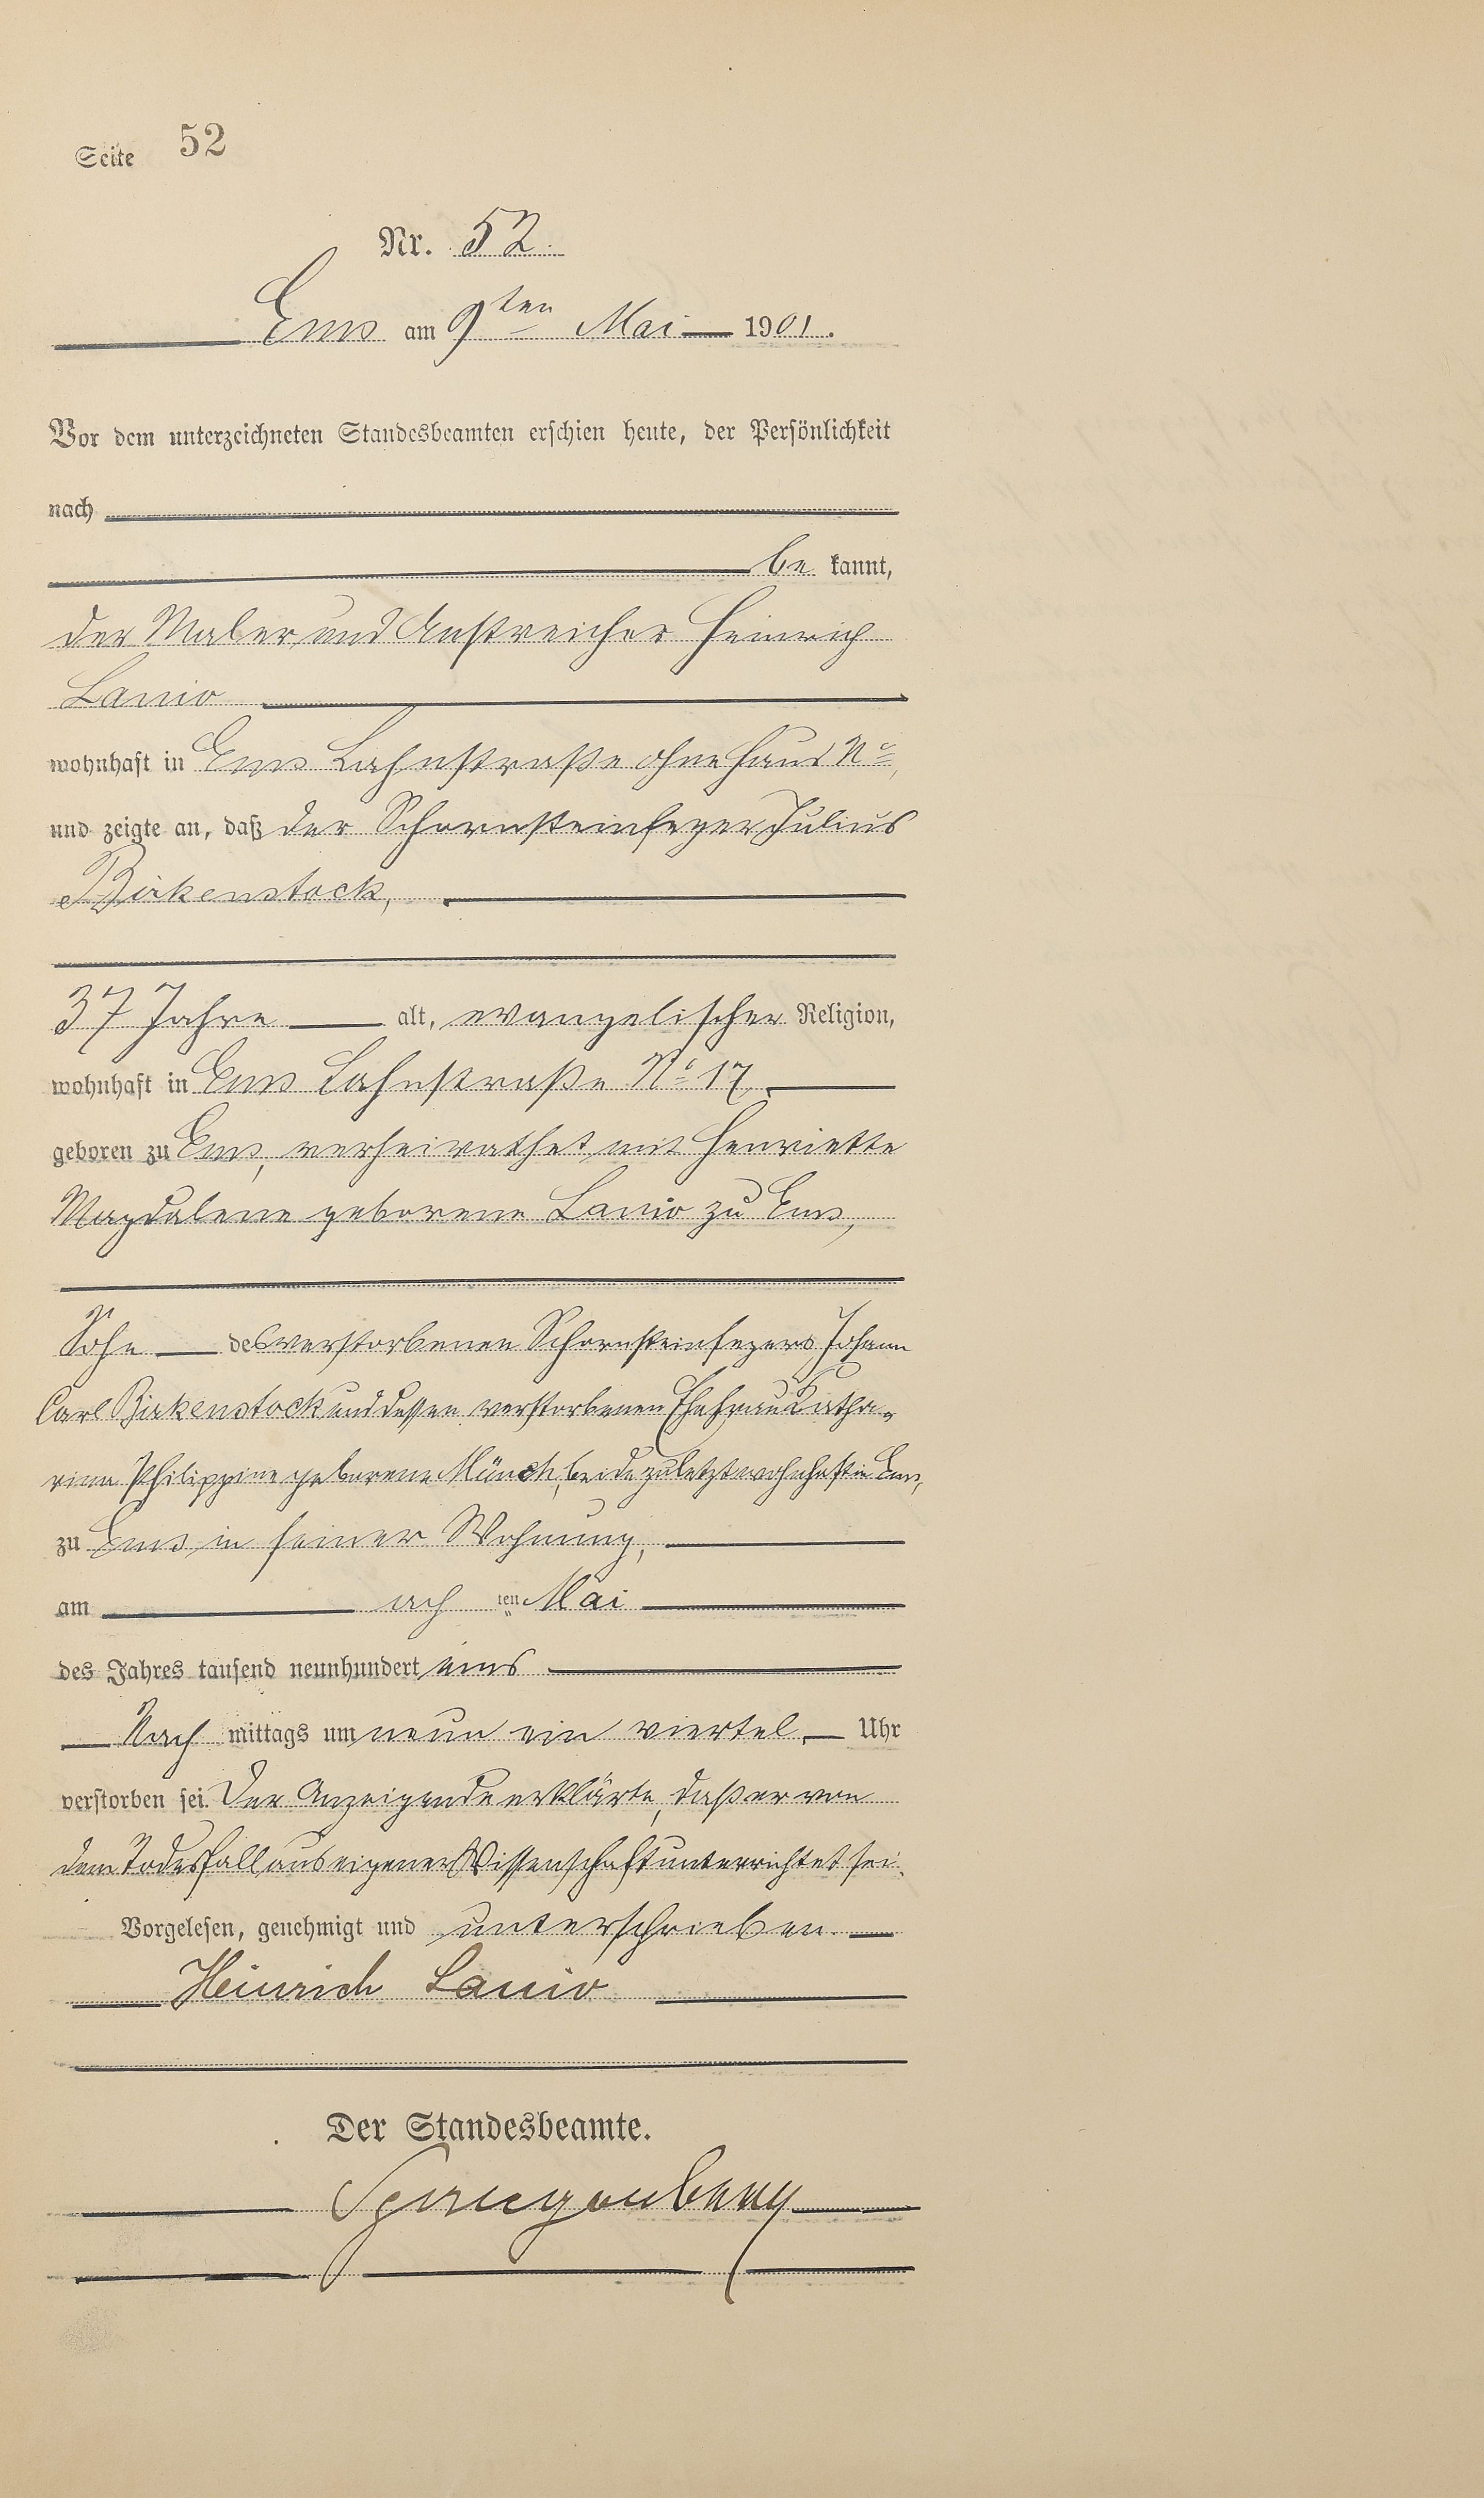 Seite 52
Nr. 52.
Ems am 9ten Mai 1901.
Vor dem unterzeichneten Standesbeamten erschien heute, der Persönlichkeit
nach
be kannt,
der Maler und Anstreicher Heinrich
Lanio
wohnhaft in Ems Lahnstraße ohne Haus No,
und zeigte an, daß der Schornsteinfeger Julius
Birkenstock,
37 Jahre alt, evangelischer Religion,
wohnhaft in Ems Lahnstraße No 17,
geboren zu Ems, verheirathet mit Henriette
Magdalene geborene Lanio zu Ems,
Sohn des verstorbenen Schornsteinfegers Johann
Carl Birkenstock und dessen verstorbenen Ehefrau Katha-
rina Philippine geborene Münch, beide zuletzt wohnhaft in Ems,
zu Ems in seiner Wohnung,
am ach ten Mai
des Jahres tausend neunhundert eins
Nach mittags um neun ein viertel Uhr
verstorben sei. Der Anzeigende erklärte, daß er von
dem Todesfall aus eigener Wissenschaft unterrichtet sei.
Vorgelesen, genehmigt und unterschrieben
Heinrich Lanio
Der Standesbeamte.